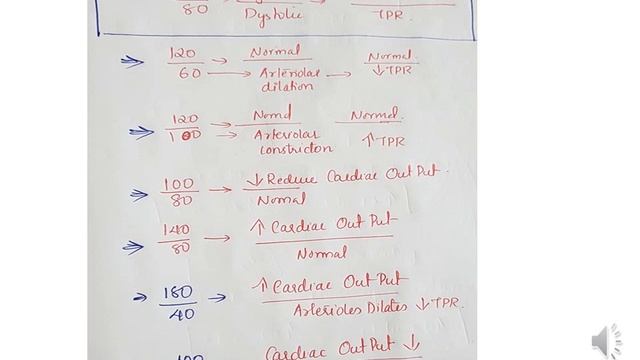 80 Dystolic TPR
120 → Normal Normal
60 → Arteriolar dilation → ↓ TPR
120 → Nomd Normal
100 → Arteriolar constricton ↑ TPR
100 → ↓ Reduce Cardiac Out Put
80 Normal
140 → ↑ Cardiac Out Put
80 Normal
180 → ↑ Cardiac Out Put
40 Arterioles Dilates ↓ TPR
100 Cardiac Out Put ↓